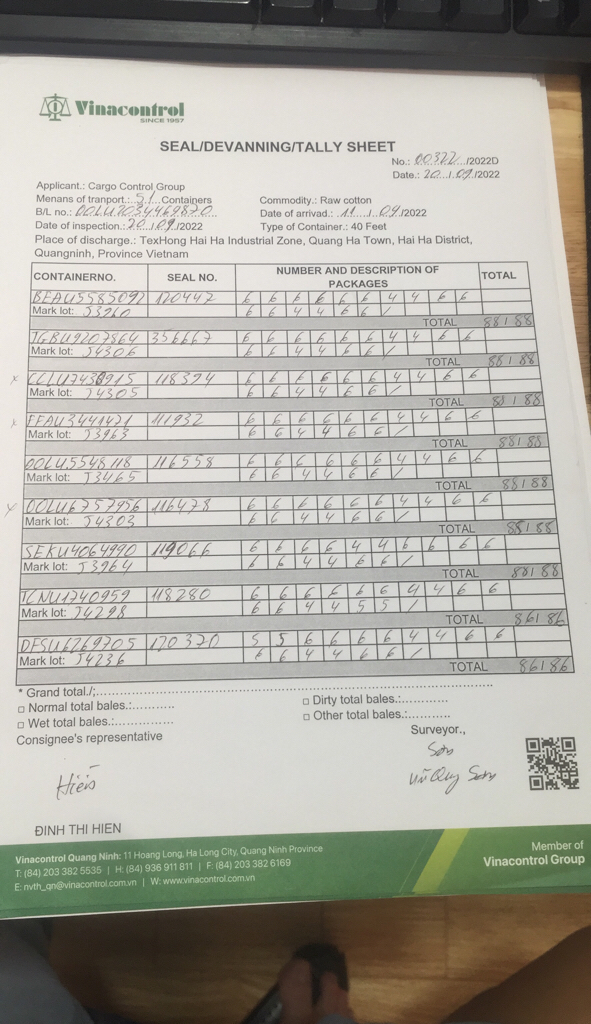 Vinacontrol
SINCE 1957
SEAL/DEVANNING/TALLY SHEET
No.: 00322 /2022D
Date.: 20 / 09 /2022
Applicant.: Cargo Control Group
Menans of tranport.: 51 Containers Commodity.: Raw cotton
B/L no.: OOLU2034469820 Date of arrivad.: 11 / 09 /2022
Date of inspection.: 20 / 09 /2022 Type of Container.: 40 Feet
Place of discharge.: TexHong Hai Ha Industrial Zone, Quang Ha Town, Hai Ha District,
Quangninh, Province Vietnam
CONTAINERNO. SEAL NO. NUMBER AND DESCRIPTION OF PACKAGES TOTAL
BEAU5585092 120442 6 6 6 6 6 6 4 4 6 6
Mark lot: J3960 6 6 4 4 6 6 /
TOTAL 88/88
TGBU9207864 356667 6 6 6 6 6 6 4 4 6 6
Mark lot: J4306 6 6 4 4 6 6 /
TOTAL 88/88
x 118394 6 6 6 6 6 6 4 4 6 6
Mark lot: J4305 6 6 4 4 6 6 /
TOTAL 88/88
x FFAU3441421 111932 6 6 6 6 6 6 4 4 6 6
Mark lot: J3963 6 6 4 4 6 6 /
TOTAL 88/88
OOLU5548118 116558 6 6 6 6 6 6 4 4 6 6
Mark lot: J3465 6 6 4 4 6 6 /
TOTAL 88/88
x OOLU6757956 116478 6 6 6 6 6 6 4 4 6 6
Mark lot: J4303 6 6 4 4 6 6 /
TOTAL 88/88
SEKU4064990 119066 6 6 6 6 4 4 6 6 6 6
Mark lot: J3964 6 6 4 4 6 6 /
TOTAL 88/88
TCNU1740959 118280 6 6 6 6 6 6 4 4 6 6
Mark lot: J4298 6 6 4 4 5 5 /
TOTAL 86/86
DFSU6269705 120320 5 5 6 6 6 6 4 4 6 6
Mark lot: J4236 6 6 4 4 6 6 /
TOTAL 86/86
* Grand total./:
□ Normal total bales.: □ Dirty total bales.:
□ Wet total bales.: □ Other total bales.:
Consignee's representative Surveyor.,
Sơn
Hiền Sơn
ĐINH THI HIEN
Vinacontrol Quang Ninh: 11 Hoang Long, Ha Long City, Quang Ninh Province
T: (84) 203 382 5535 | H: (84) 936 911 811 | F: (84) 203 382 6169
E: nvth_qn@vinacontrol.com.vn | W: www.vinacontrol.com.vn
Member of
Vinacontrol Group